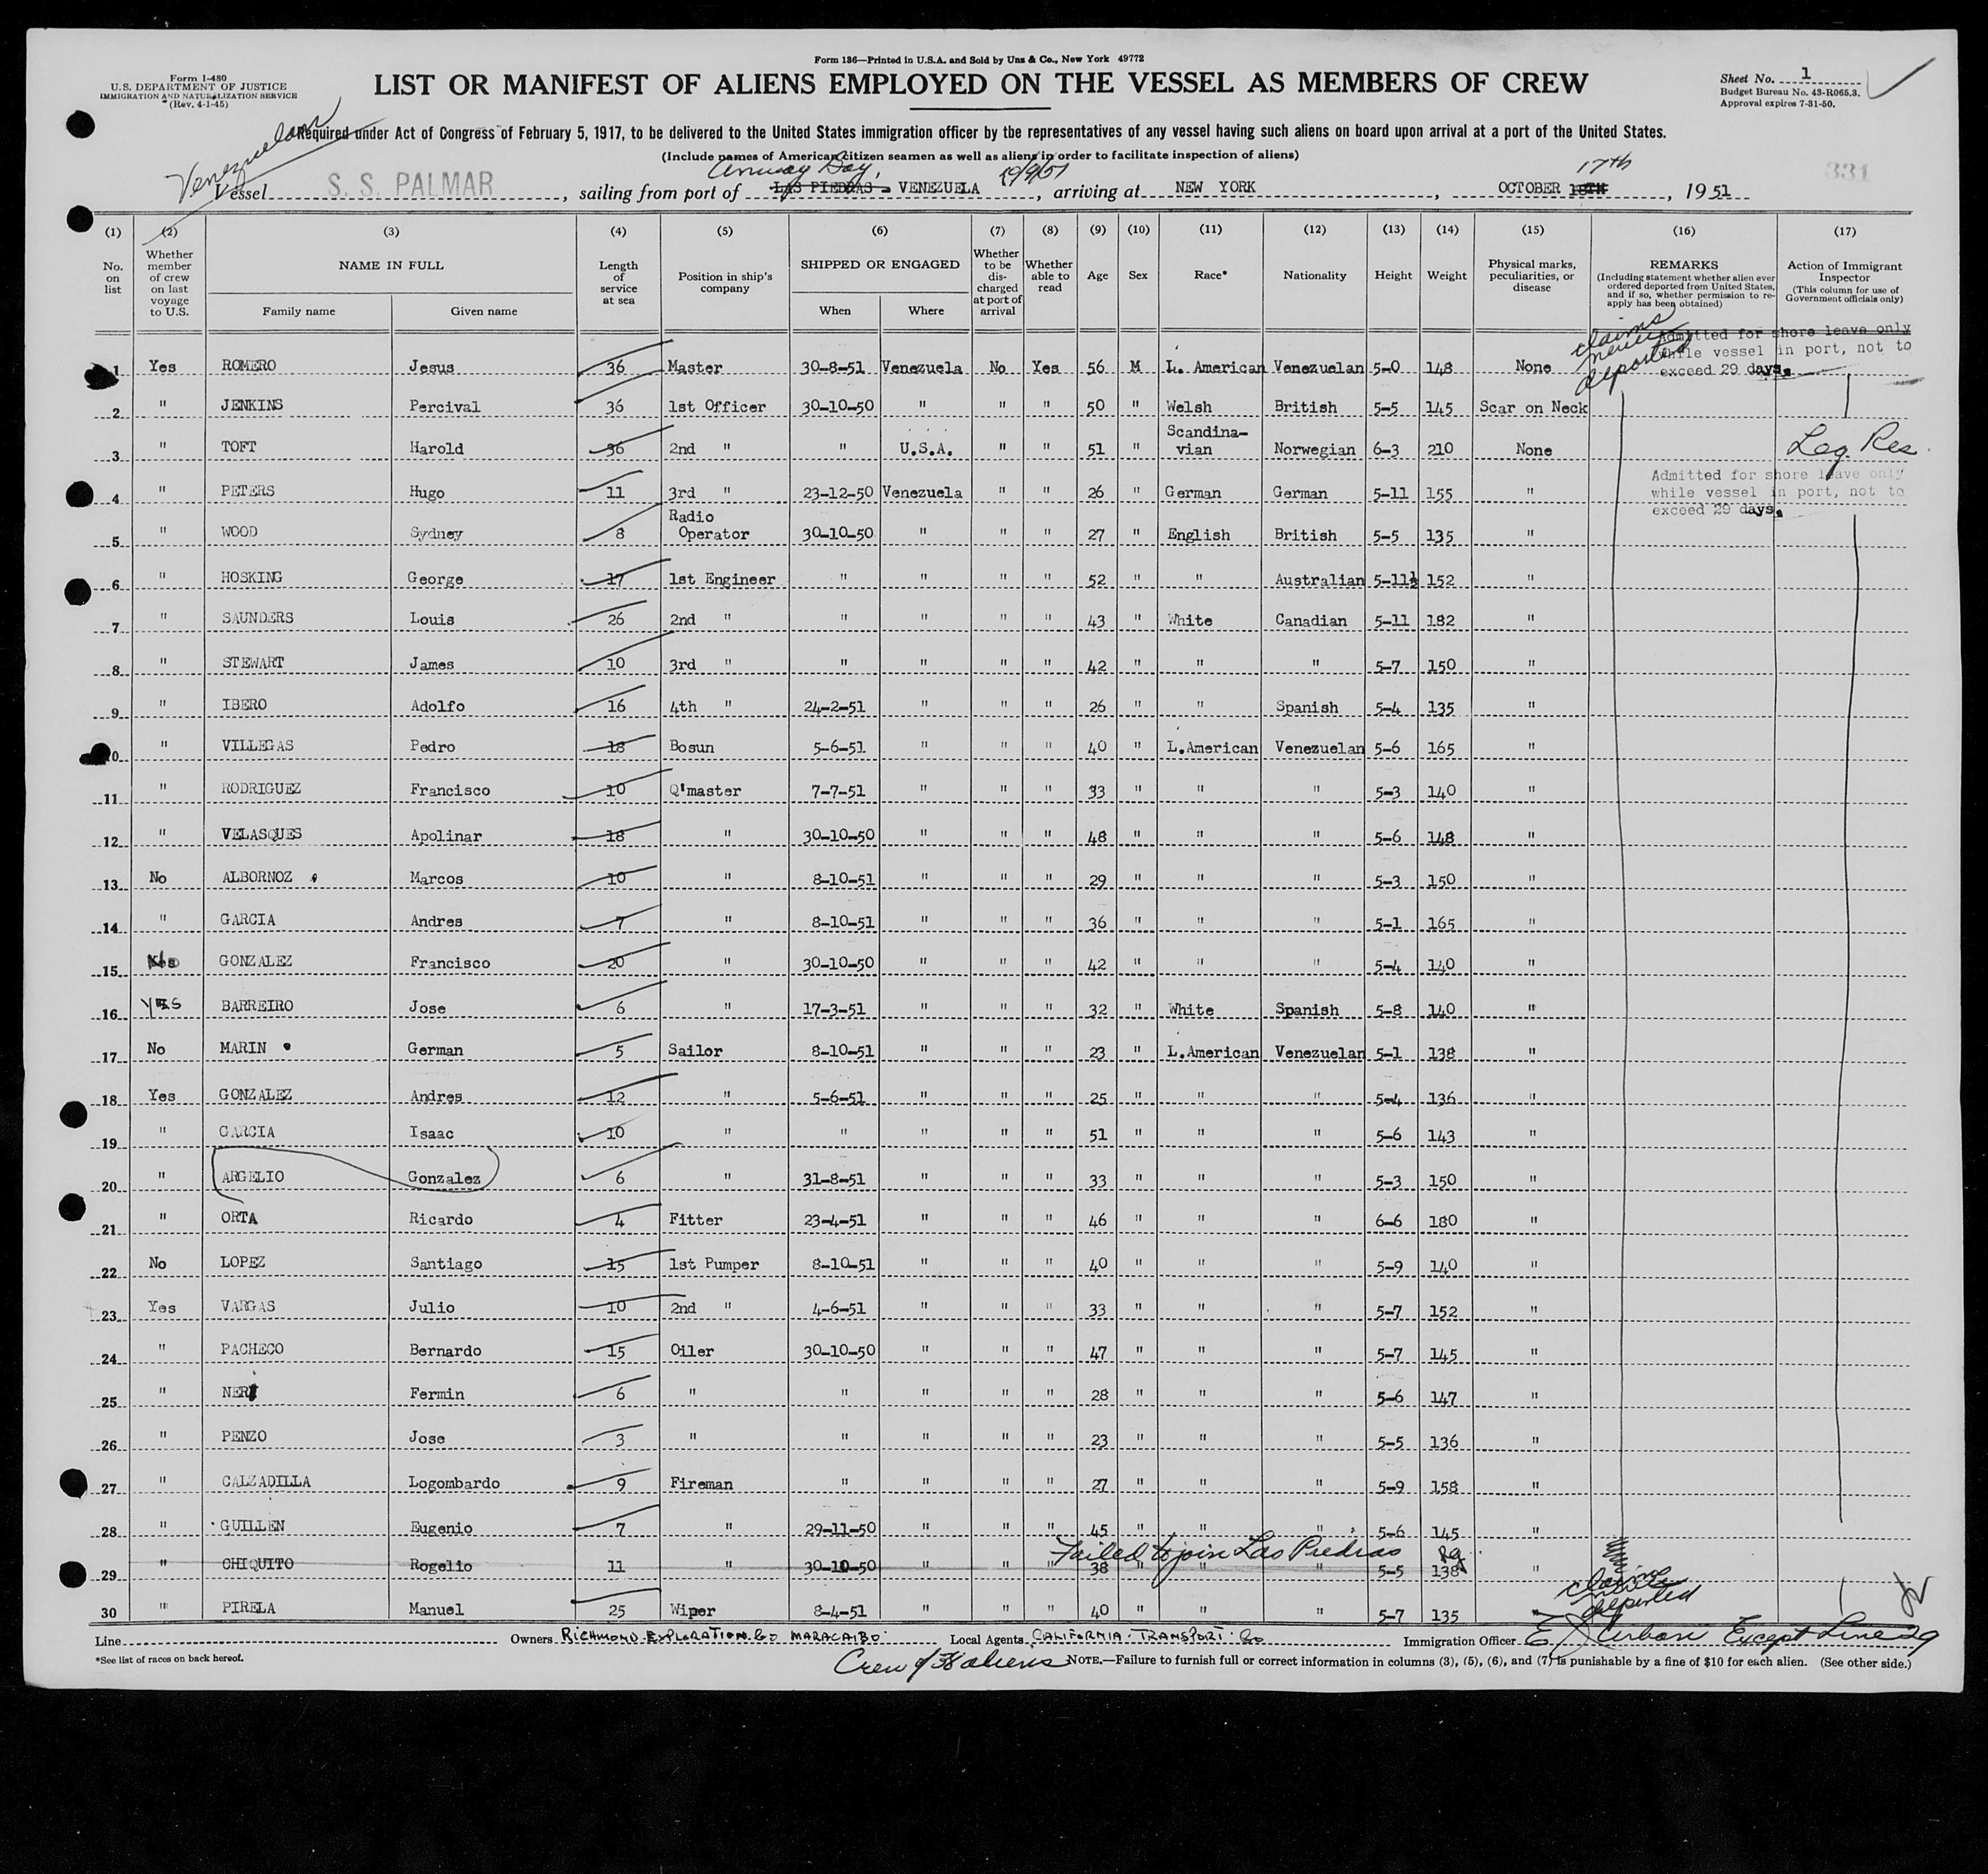 Form 136—Printed in U.S.A. and Sold by Unz & Co., New York 49772
Form I-480
U.S. DEPARTMENT OF JUSTICE
IMMIGRATION AND NATURALIZATION SERVICE
(Rev. 4-1-45)
LIST OR MANIFEST OF ALIENS EMPLOYED ON THE VESSEL AS MEMBERS OF CREW
Sheet No. 1
Budget Bureau No. 43-R065.3.
Approval expires 7-31-50.
Required under Act of Congress of February 5, 1917, to be delivered to the United States immigration officer by the representatives of any vessel having such aliens on board upon arrival at a port of the United States.
(Include names of American citizen seamen as well as aliens in order to facilitate inspection of aliens)
Venezuelan
Amuay Bay, 10/9/51 17th 331
Vessel S. S. PALMAR, sailing from port of LAS PIEDRAS - VENEZUELA, arriving at NEW YORK, OCTOBER 18TH, 1951
(1) (2) (3) (4) (5) (6) (7) (8) (9) (10) (11) (12) (13) (14) (15) (16) (17)
No. on list
Whether member of crew on last voyage to U.S.
NAME IN FULL
Family name Given name
Length of service at sea
Position in ship's company
SHIPPED OR ENGAGED
When Where
Whether to be discharged at port of arrival
Whether able to read
Age Sex Race* Nationality Height Weight
Physical marks, peculiarities, or disease
REMARKS
(Including statement whether alien ever ordered deported from United States, and if so, whether permission to reapply has been obtained)
Action of Immigrant Inspector
(This column for use of Government officials only)
claims never deported
Admitted for shore leave only
while vessel in port, not to
exceed 29 days.
1 Yes ROMERO Jesus 36 Master 30-8-51 Venezuela No Yes 56 M L. American Venezuelan 5-0 148 None
2 " JENKINS Percival 36 1st Officer 30-10-50 " " " 50 " Welsh British 5-5 145 Scar on Neck
3 " TOFT Harold 36 2nd " " U.S.A. " " 51 " Scandina-vian Norwegian 6-3 210 None Leg. Res.
4 " PETERS Hugo 11 3rd " 23-12-50 Venezuela " " 26 " German German 5-11 155 "
Admitted for shore leave only
while vessel in port, not to
exceed 29 days.
5 " WOOD Sydney 8 Radio Operator 30-10-50 " " " 27 " English British 5-5 135 "
6 " HOSKING George 17 1st Engineer " " " " 52 " " Australian 5-11½ 152 "
7 " SAUNDERS Louis 26 2nd " " " " " 43 " White Canadian 5-11 182 "
8 " STEWART James 10 3rd " " " " " 42 " " " 5-7 150 "
9 " IBERO Adolfo 16 4th " 24-2-51 " " " 26 " " Spanish 5-4 135 "
10 " VILLEGAS Pedro 18 Bosun 5-6-51 " " " 40 " L.American Venezuelan 5-6 165 "
11 " RODRIGUEZ Francisco 10 Q'master 7-7-51 " " " 33 " " " 5-3 140 "
12 " VELASQUES Apolinar 18 " 30-10-50 " " " 48 " " " 5-6 148 "
13 No ALBORNOZ Marcos 10 " 8-10-51 " " " 29 " " " 5-3 150 "
14 " GARCIA Andres 7 " 8-10-51 " " " 36 " " " 5-1 165 "
15 GONZALEZ Francisco 20 " 30-10-50 " " " 42 " " " 5-4 140 "
16 YES BARREIRO Jose 6 " 17-3-51 " " " 32 " White Spanish 5-8 140 "
17 No MARIN German 5 Sailor 8-10-51 " " " 23 " L.American Venezuelan 5-1 138 "
18 Yes GONZALEZ Andres 12 " 5-6-51 " " " 25 " " " 5-4 136 "
19 " GARCIA Isaac 10 " " " " " 51 " " " 5-6 143 "
20 " ARGELIO Gonzalez 6 " 31-8-51 " " " 33 " " " 5-3 150 "
21 " ORTA Ricardo 4 Fitter 23-4-51 " " " 46 " " " 6-6 180 "
22 No LOPEZ Santiago 15 1st Pumper 8-10-51 " " " 40 " " " 5-9 140 "
23 Yes VARGAS Julio 10 2nd " 4-6-51 " " " 33 " " " 5-7 152 "
24 " PACHECO Bernardo 15 Oiler 30-10-50 " " " 47 " " " 5-7 145 "
25 " NERI Fermin 6 " " " " " 28 " " " 5-6 147 "
26 " PENZO Jose 3 " " " " " 23 " " " 5-5 136 "
27 " CALZADILLA Logombardo 9 Fireman " " " " 27 " " " 5-9 158 "
28 " GUILLEN Eugenio 7 " 29-11-50 " " " 45 " " " 5-6 145 "
Failed to join Las Piedras
29 " CHIQUITO Rogelio 11 " 30-10-50 " " " 38 " " " 5-5 138 "
30 " PIRELA Manuel 25 Wiper 8-4-51 " " " 40 " " " 5-7 135 "
claims never deported
Line Owners RICHMOND EXPLORATION Co MARACAIBO Local Agents CALIFORNIA TRANSPORT Co Immigration Officer Except Line 29
*See list of races on back hereof.
Crew of aliens
NOTE.—Failure to furnish full or correct information in columns (3), (5), (6), and (7) is punishable by a fine of $10 for each alien. (See other side.)